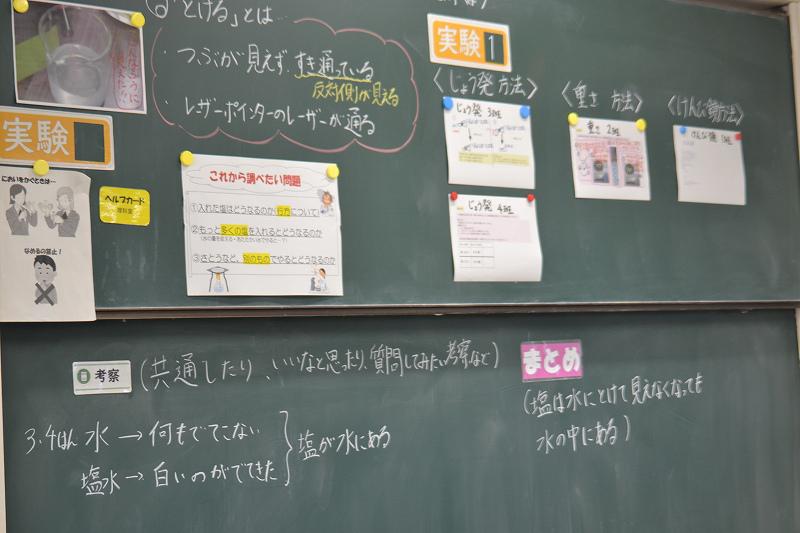 「とける」とは…
・つぶが見えず、すき通っている
反対側が見える
・レーザーポインターのレーザーが通る
実験 1
〈じょう発方法〉
〈重さ 方法〉
〈けんび鏡方法〉
じょう発 3班
重さ 2班
けんび鏡 1班
じょう発 4班
実験
においをかぐときは…
なめるの禁止！
ヘルプカード
理科室
これから調べたい問題
①入れた塩はどうなるのか(行方について)
②もっと多くの塩を入れるとどうなるのか
(水の量を変える・あたたかい水でやると…?)
③さとうなど、別のものでやるとどうなるのか
考察
(共通したり、いいなと思ったり、質問してみたい考察など)
まとめ
3・4はん 水 → 何もでてこない
塩水 → 白いのがでてきた
塩が水にある
(塩は水にとけて見えなくなっても
水の中にある)